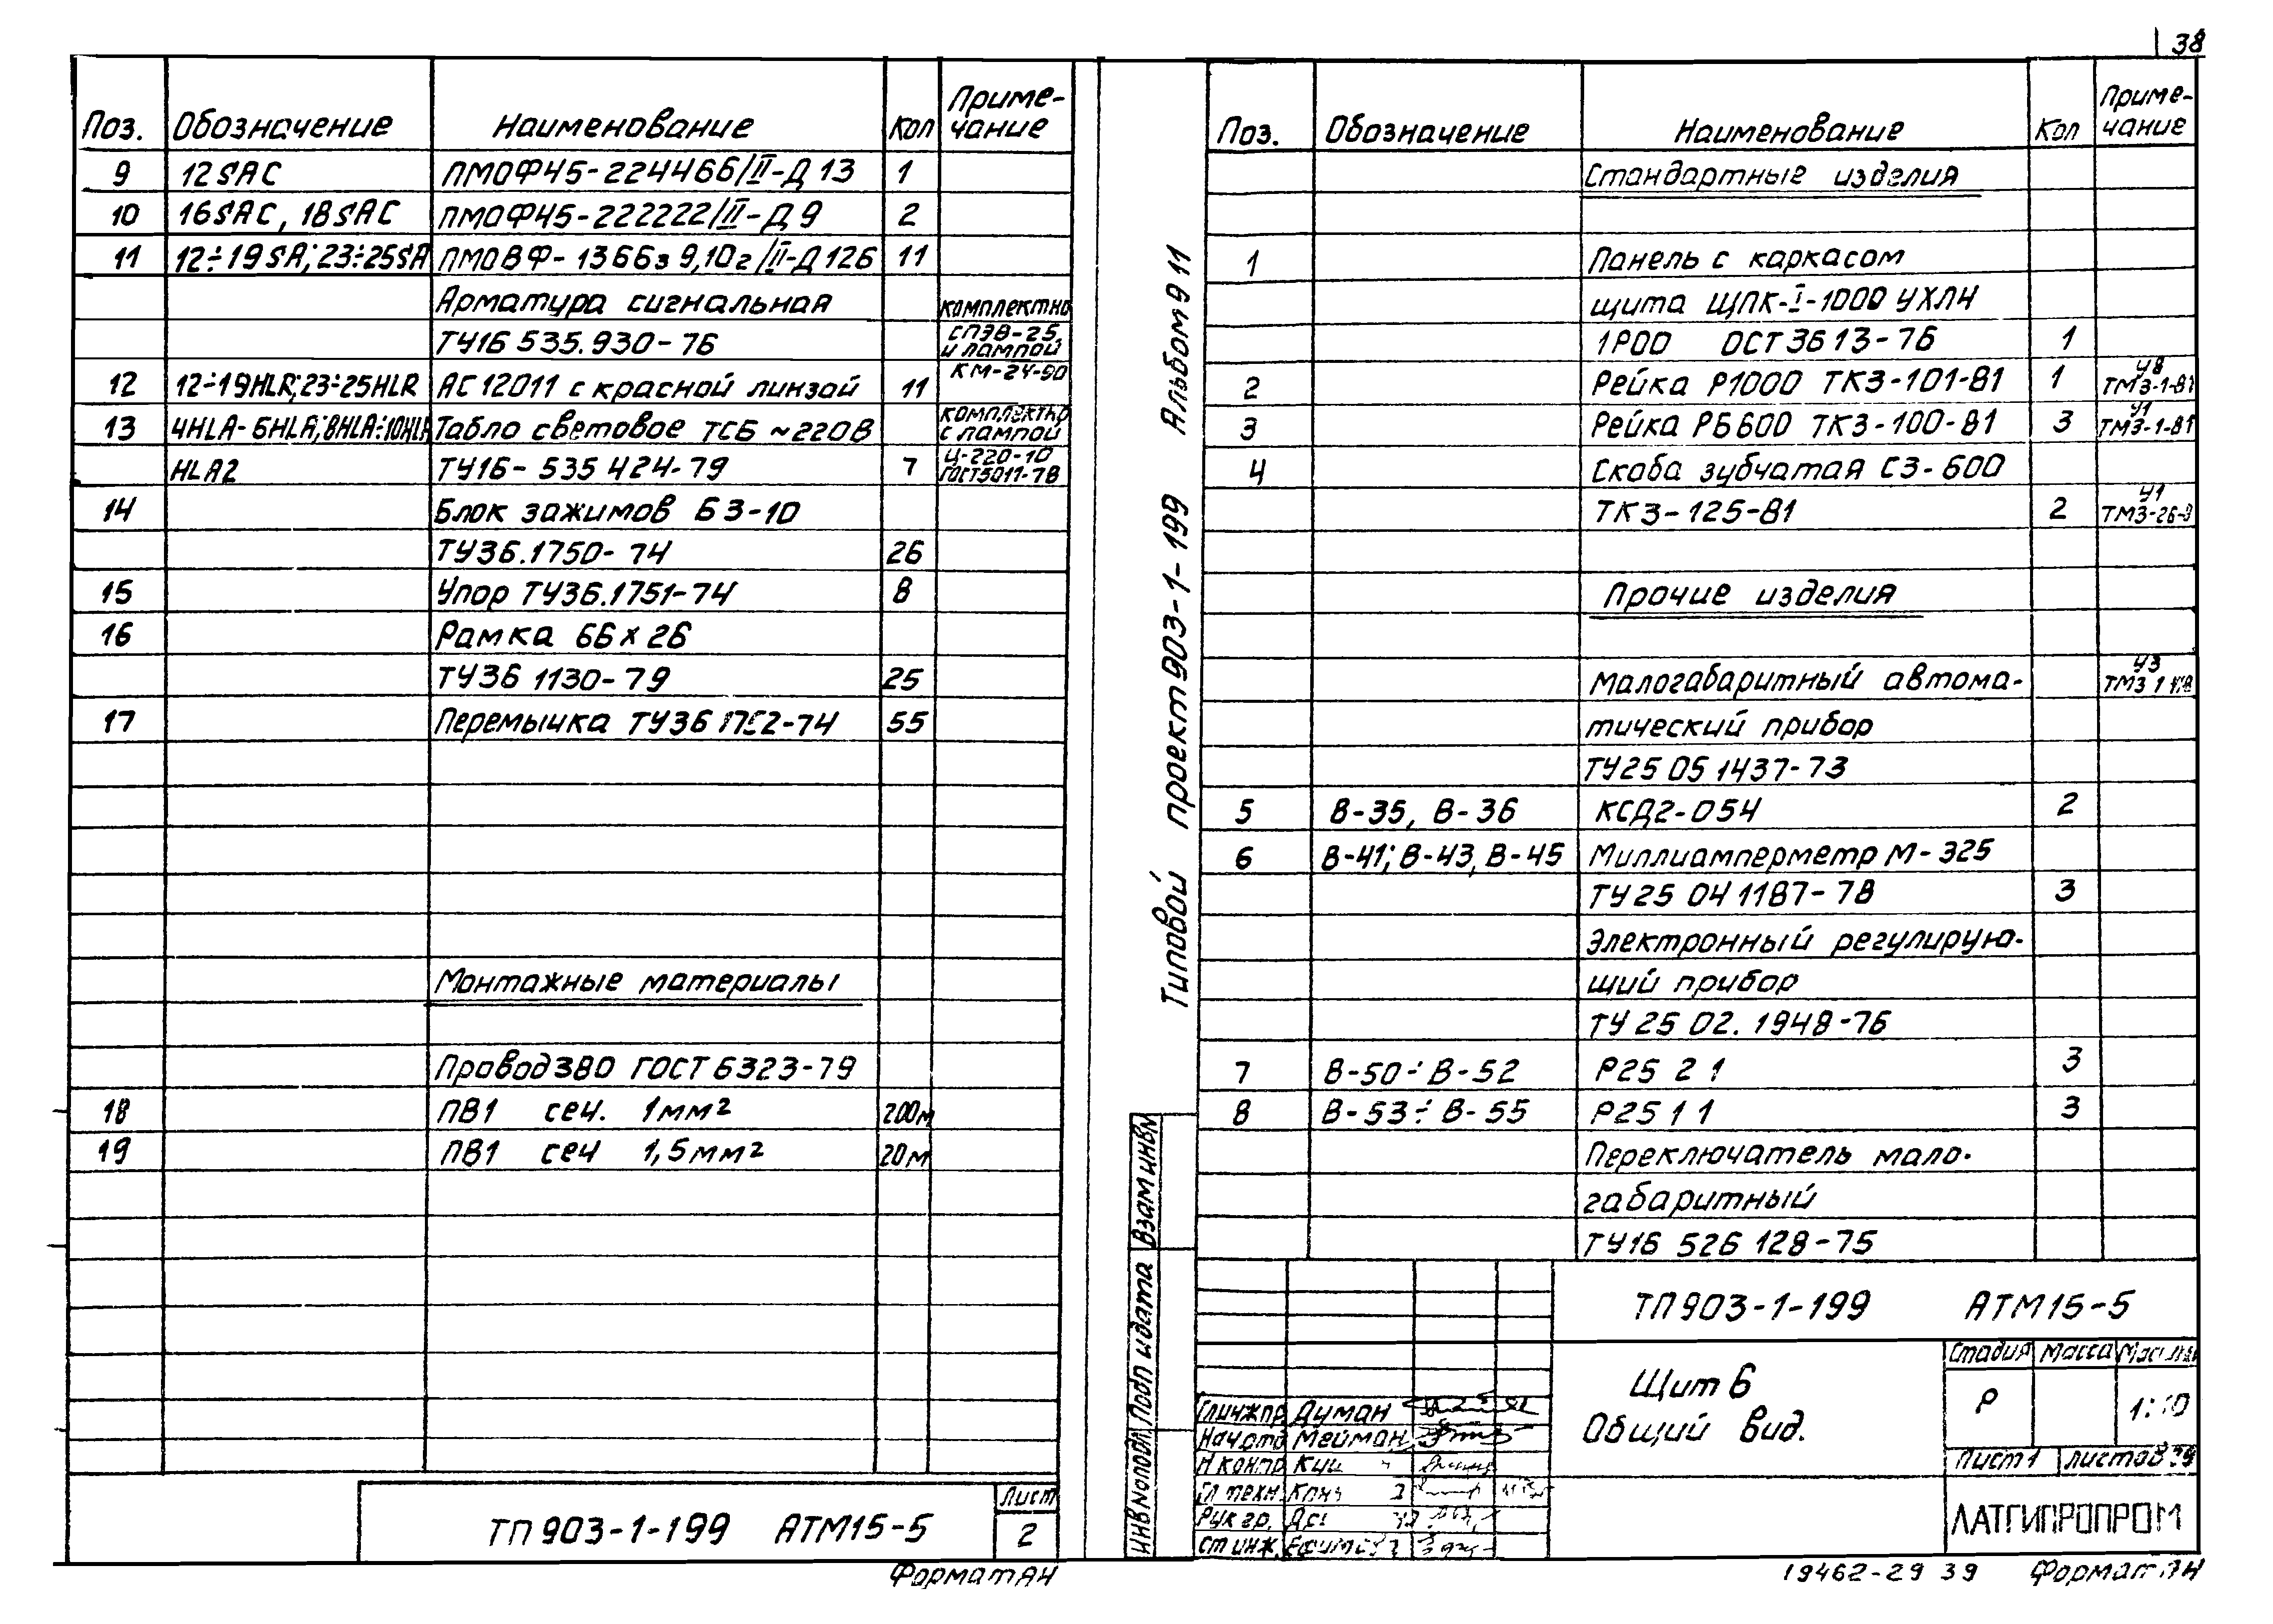 38
Поз. Обозначение Наименование Кол Приме-
чание
9 12SAC ПМОФ45-224466/II-Д 13 1
10 16SAC, 18SAC ПМОФ45-222222/II-Д 9 2
11 12÷19SA; 23÷25SA ПМОВФ-1366з 9,10г/II-Д126 11
Арматура сигнальная комплектно
ТУ16 535.930-76 СПЭВ-25,
и лампой
12 12÷19HLR; 23÷25HLR АС12011 с красной линзой 11 КМ-24-90
13 4HLA-6HLA; 8HLA÷10HLA Табло световое ТСБ ~220В комплектно
с лампой
HLA2 ТУ16-535 424-79 7 Ц-220-10
ГОСТ5011-78
14 Блок зажимов БЗ-10
ТУ36.1750-74 26
15 Упор ТУ36.1751-74 8
16 Рамка 66x26
ТУ36 1130-79 25
17 Перемычка ТУ36 1752-74 55
Монтажные материалы
Провод 380 ГОСТ 6323-79
18 ПВ1 сеч. 1мм2 200м
19 ПВ1 сеч 1,5мм2 20м
ТП 903-1-199 АТМ15-5
Лист
2
Формат А4
Типовой проект 903-1-199 Альбом 9 11
Взам инв№
Подп и дата
Инв№подл.
Поз. Обозначение Наименование Кол Приме-
чание
Стандартные изделия
1 Панель с каркасом
щита ЩПК-I-1000 УХЛ4
1Р00 ОСТ 36 13-76 1
2 Рейка Р1000 ТК3-101-81 1 У8
ТМ3-1-81
3 Рейка РБ600 ТК3-100-81 3 У1
ТМ3-1-81
4 Скоба зубчатая СЗ-600
ТК3-125-81 2 У1
ТМ3-26-
Прочие изделия
Малогабаритный автома- У3
ТМ3 1
тический прибор
ТУ25 05 1437-73
5 В-35, В-36 КСД2-054 2
6 В-41; В-43, В-45 Миллиамперметр М-325
ТУ25 04 1187-78 3
Электронный регулирую-
щий прибор
ТУ 25 02. 1948-76
7 В-50÷В-52 Р25 2 1 3
8 В-53÷В-55 Р25 1 1 3
Переключатель мало-
габаритный
ТУ16 526 128-75
ТП 903-1-199 АТМ15-5
Щит 6
Общий вид.
Стадия Масса
Р 1:10
Лист 1 Листов
ЛАТГИПРОПРОМ
Глинжпр Думан
Нач отд Мейман
Н контр
Гл техн.
Рук гр.
Ст инж.
19462-29 39 Формат А4